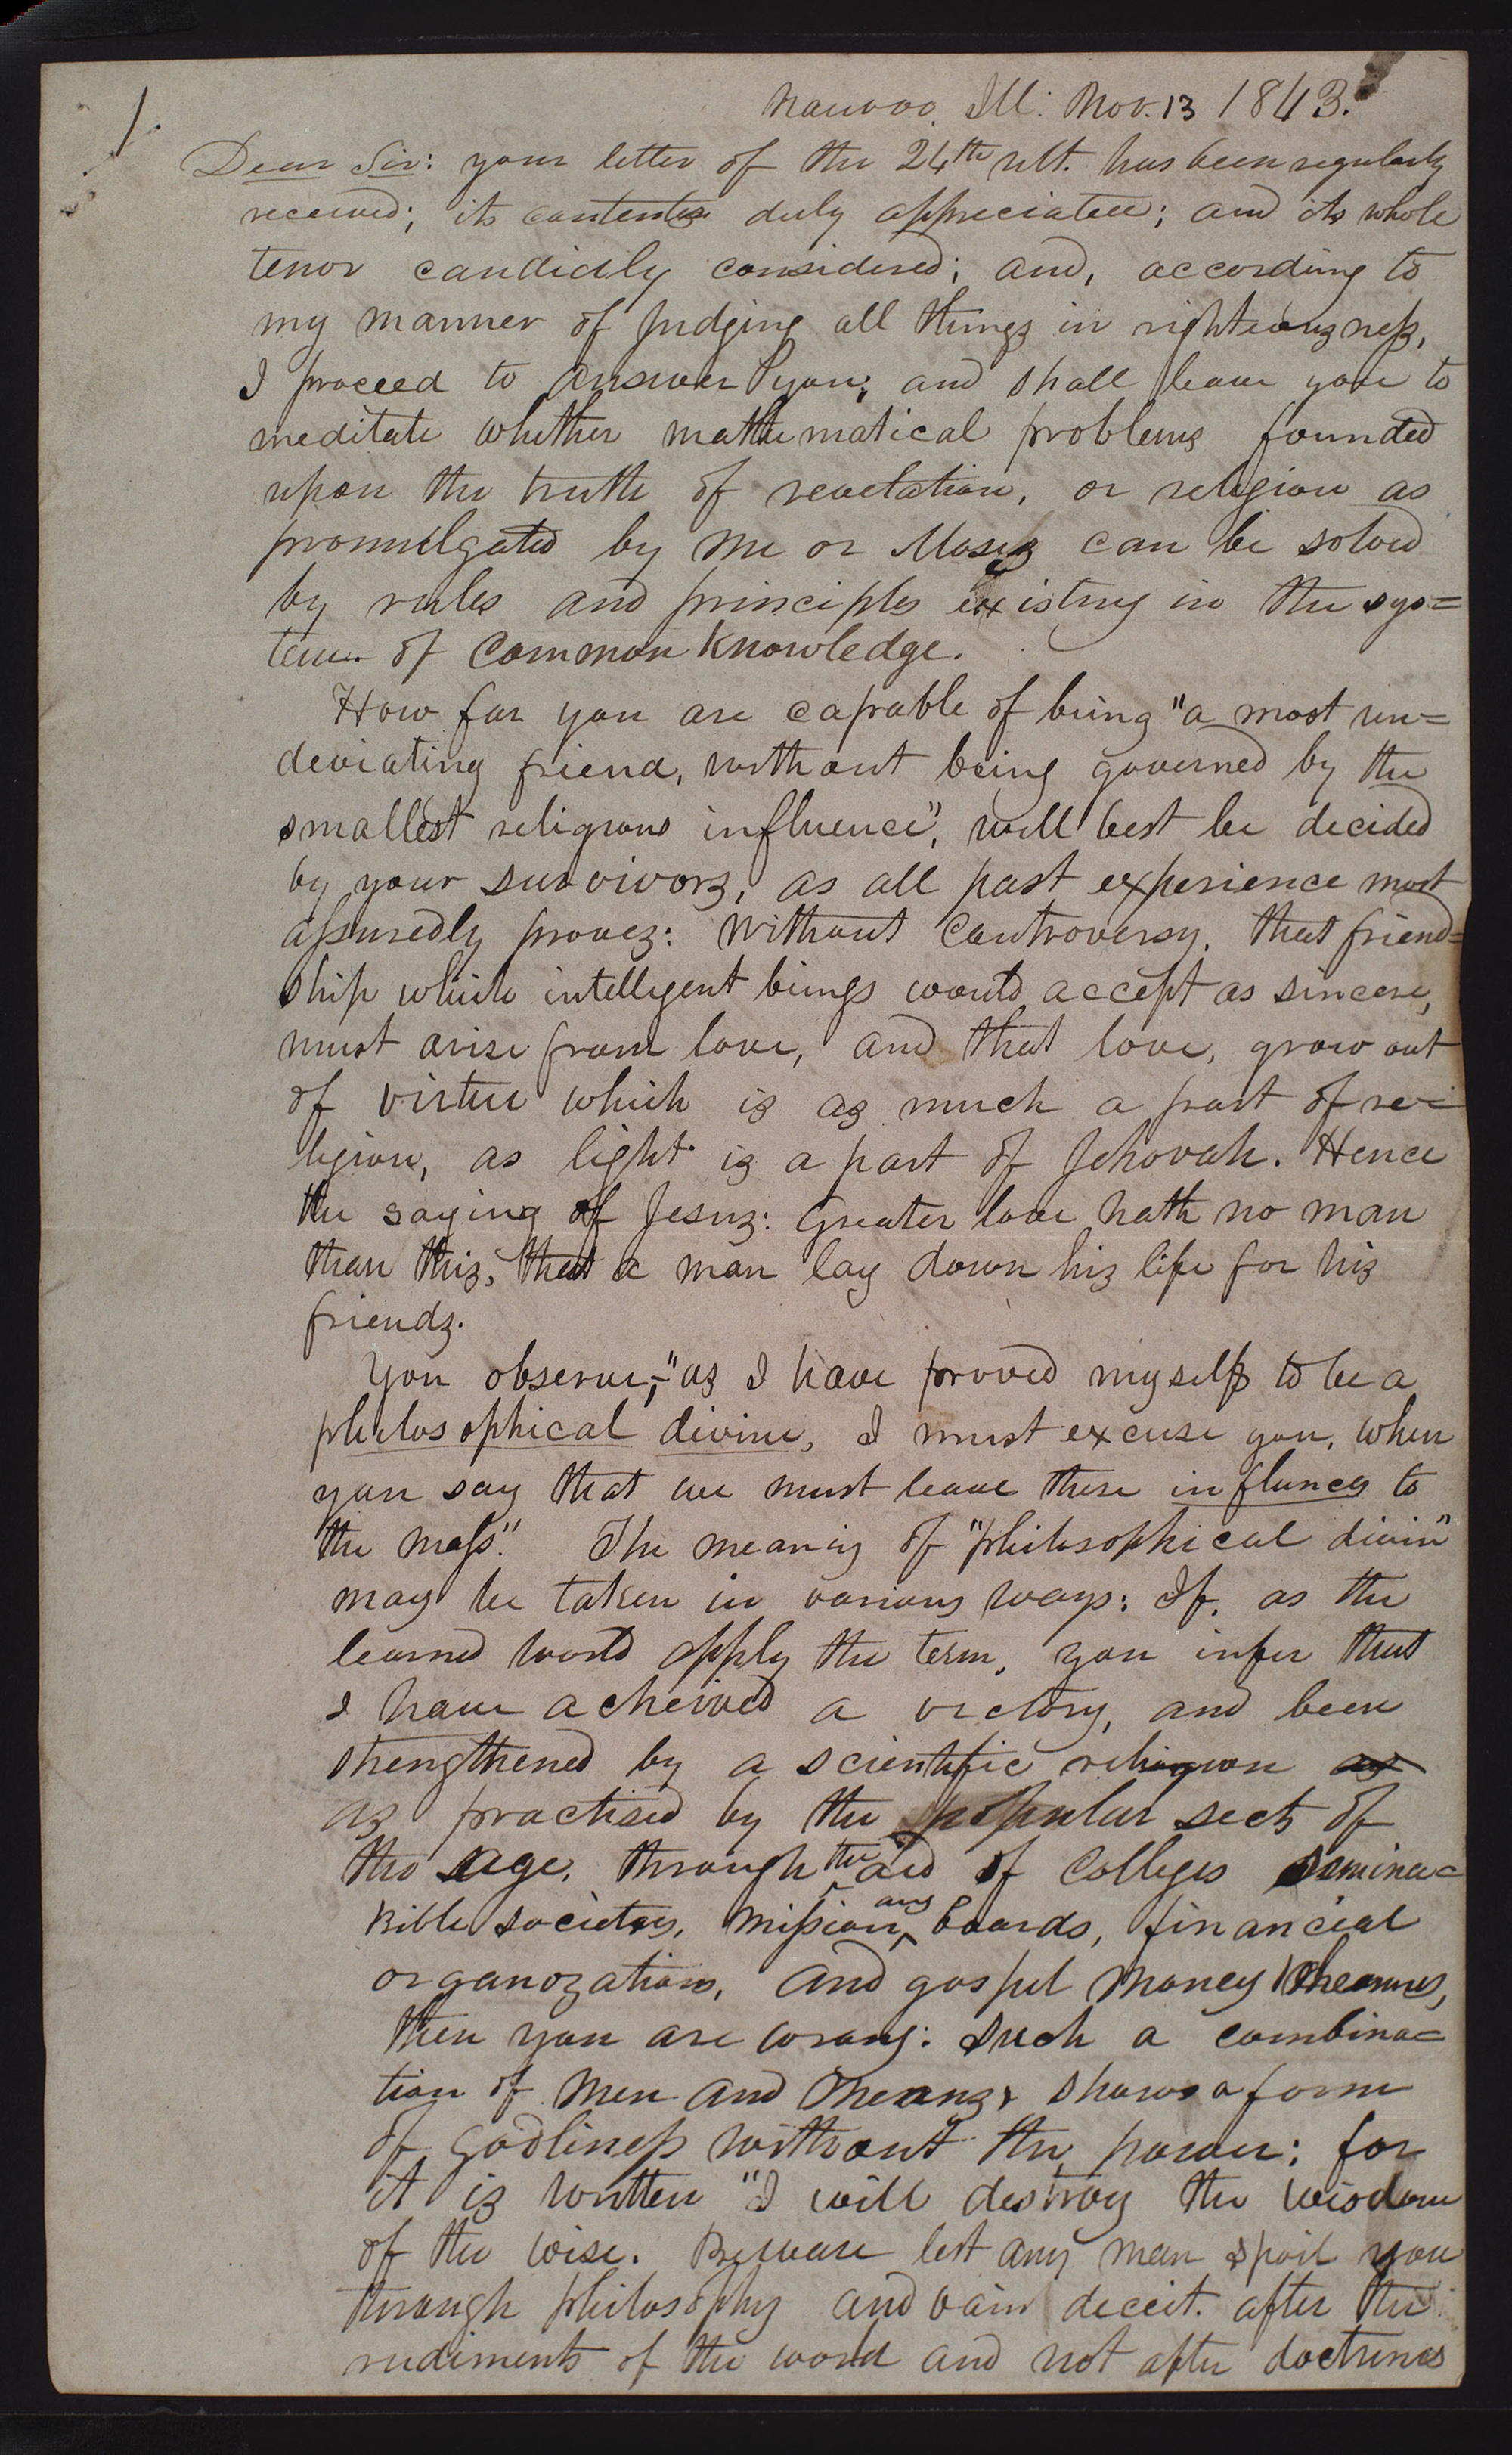 1.
Nauvoo. Ill: Nov. 13 1843.
Dear Sir: your letter of the 24th ult. has been regularly
received; its contents duly appreciated; and its whole
tenor candidly considered; and, according to
my manner of judging all things in righteousness,
I proceed to answer you; and shall leave you to
meditate whether mathematical problems founded
upon the truth of revelation, or religion as
promulgated by me or Moses can be solved
by rules and principles existing in the sys=
tem of common knowledge.
How far you are capable of being "a most un=
deviating friend, without being governed by the
smallest religious influence", will best be decided
by your survivors, as all past experience most
assuredly proves: Without controversy, that friend=
ship which intelligent beings would accept as sincere,
must arise from love, and that love, grow out
of virtue which is as much a part of re=
ligion, as light is a part of Jehovah. Hence
the saying of Jesus: Greater love hath no man
than this, that a man lay down his life for his
friends.
You observe, "as I have proved myself to be a
philosophical divine, I must excuse you, when
you say that we must leave these influnces to
the mass". The meaning of "philosophical divin"
may be taken in various ways: If, as the
learned world apply the term, you infer that
I have acheived a victory, and been
strengthened by a scientific religion as
as practised by the popular sects of
the age, through the aid of colleges semina=
Bible societies, missionary boards, financial
organozations, and gospel money schemes,
then you are wrong: Such a combina=
tion of men and means, shows a form
of godliness without the power: for
it is written "I will destroy the wisdom
of the wise. Beware lest any man spoil you
through philosophy and vain deceit. after the
rudiments of the world and not after doctrines